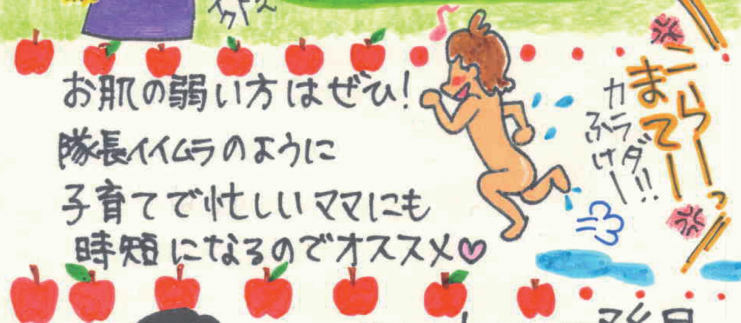 お肌の弱い方はぜひ!
隊長イイムラのように
子育てで忙しいママにも
時短になるのでオススメ♡
こらーっ
まてー
カラダ
ふけー!!